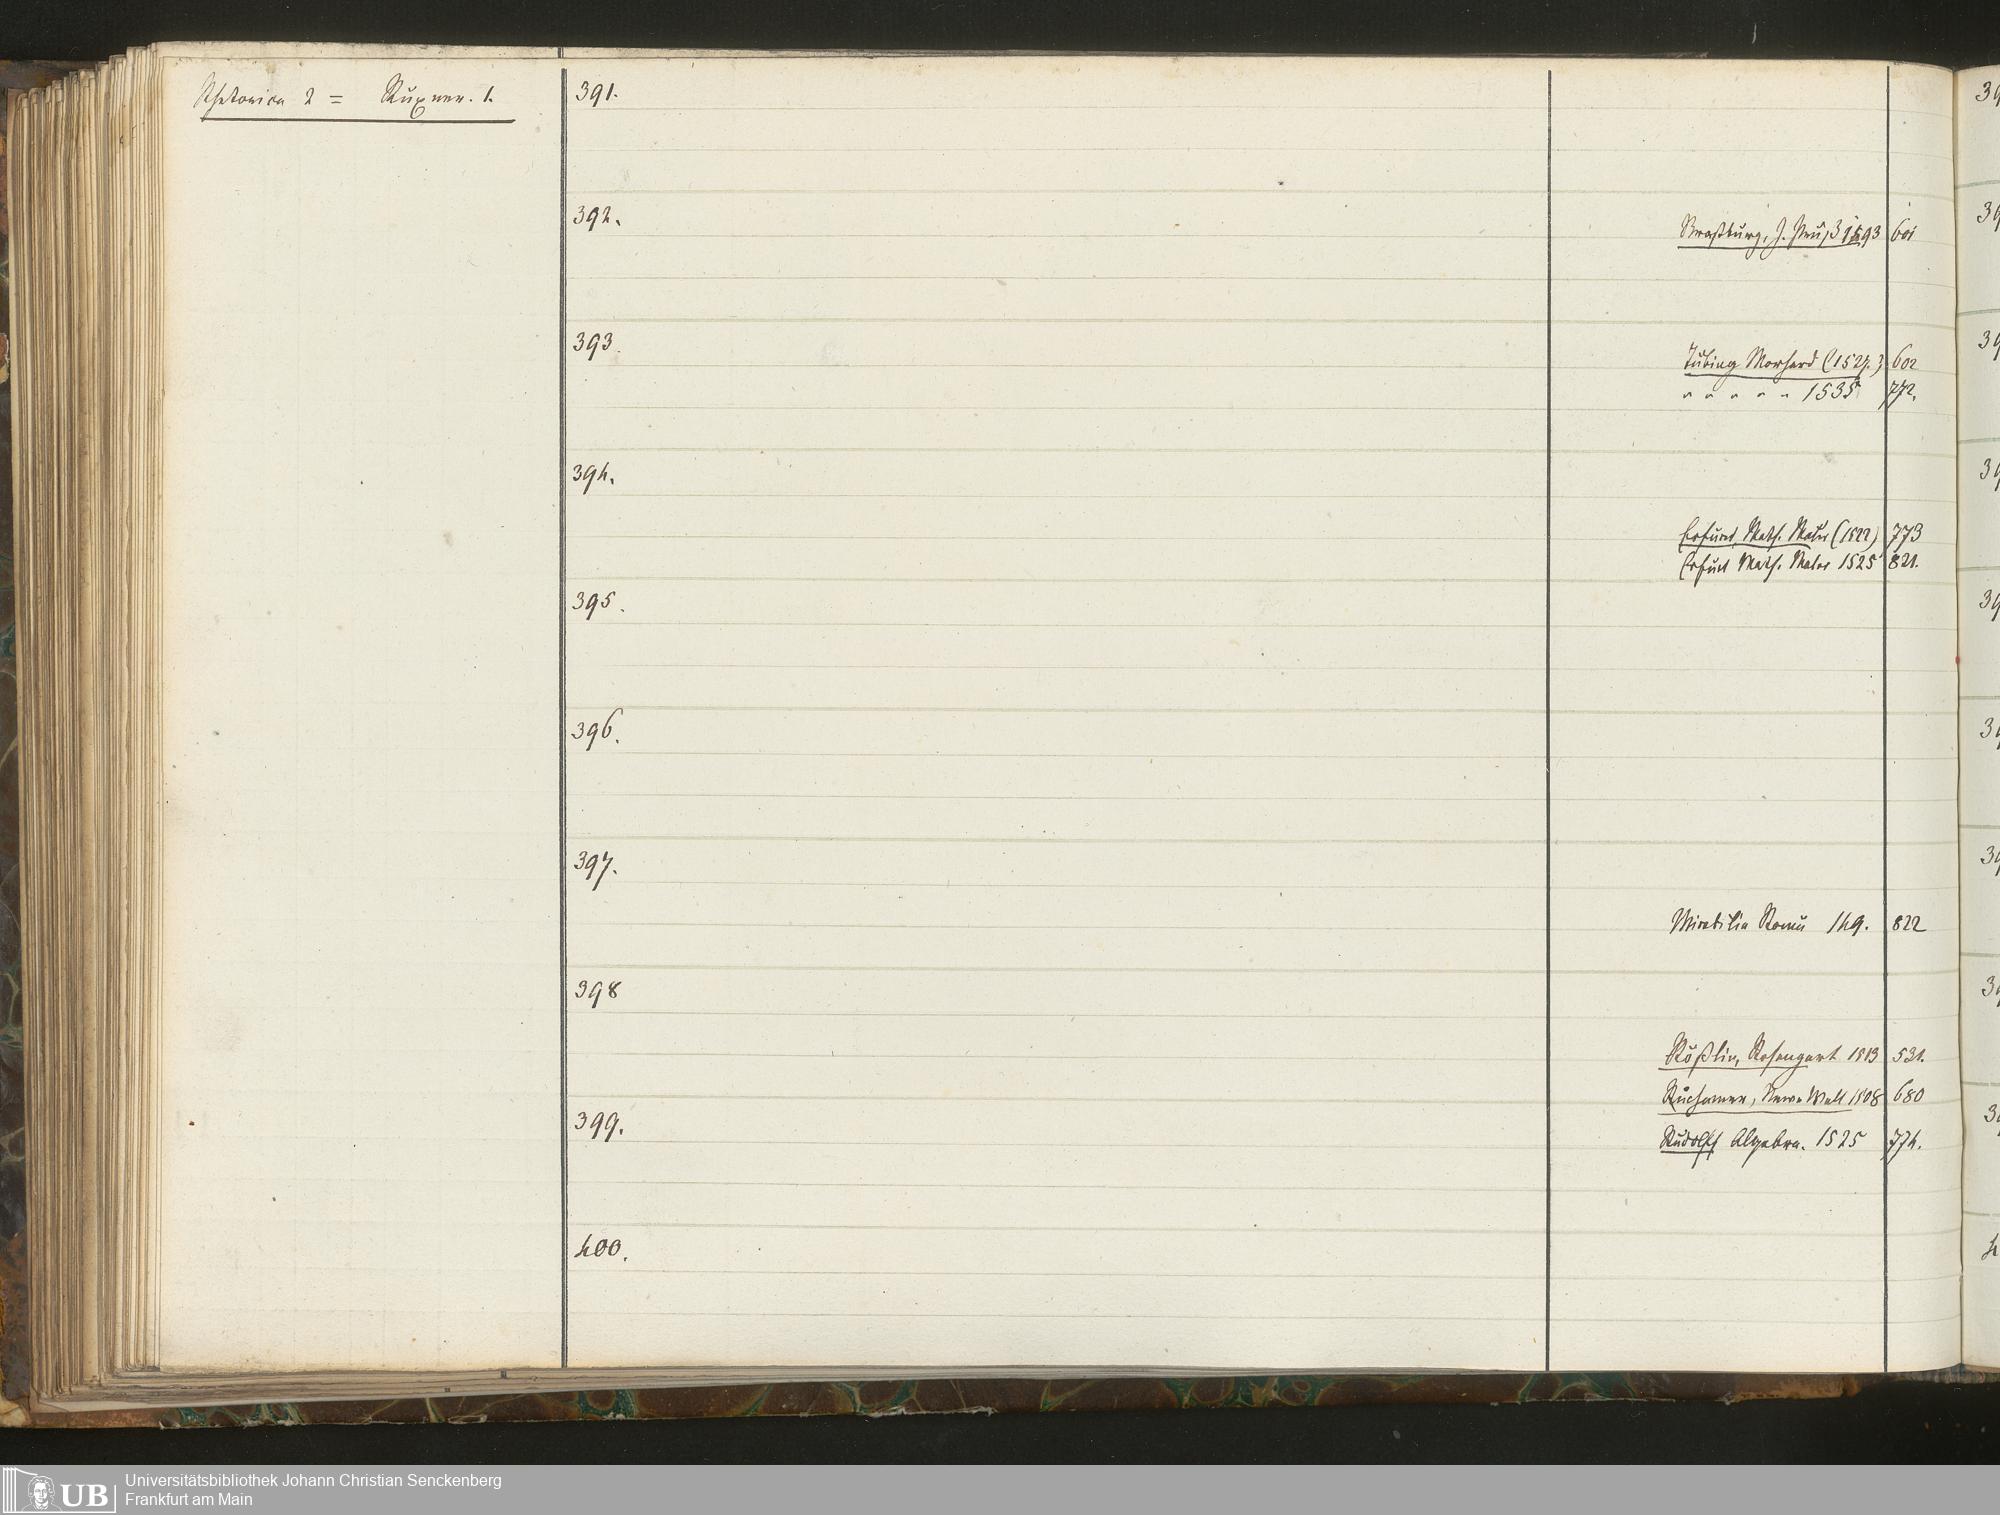 Rhetorica 2 = Ruxner. 1.
391.
392.
Straßburg, J. Prüß 1493 601
393.
Tübing Morhard (152 .) 602
" " " " " 1535 772.
394.
Erfurt, Math. Maler (1522) 773
Erfurt Math. Maler 1525 821.
395.
396.
397.
Mirabilia Romä 149. 822
398
Rößlin, Rosengart 1513 531.
Ruchamer, Newe Welt 1508 680
399.
Rudolff Algebra. 1525 774.
400.
UB
Universitätsbibliothek Johann Christian Senckenberg
Frankfurt am Main